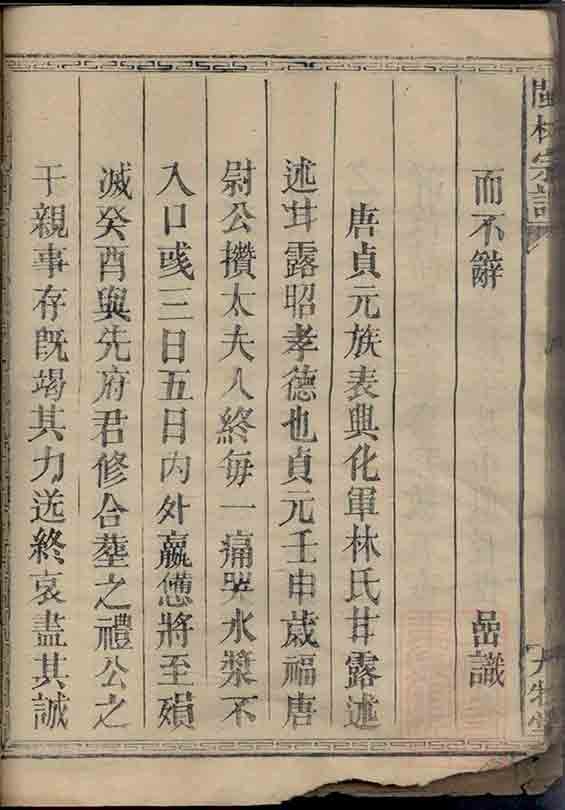 閩林宗譜
而不辭　嵒識
唐貞元族表興化軍林氏甘露述
述甘露昭孝德也貞元壬申歲福唐
尉公攢太夫人終每一痛哭水漿不
入口或三日五日內外羸憊將至殞
滅癸酉與先府君修合塟之禮公之
于親事存旣竭其力送終哀盡其誠